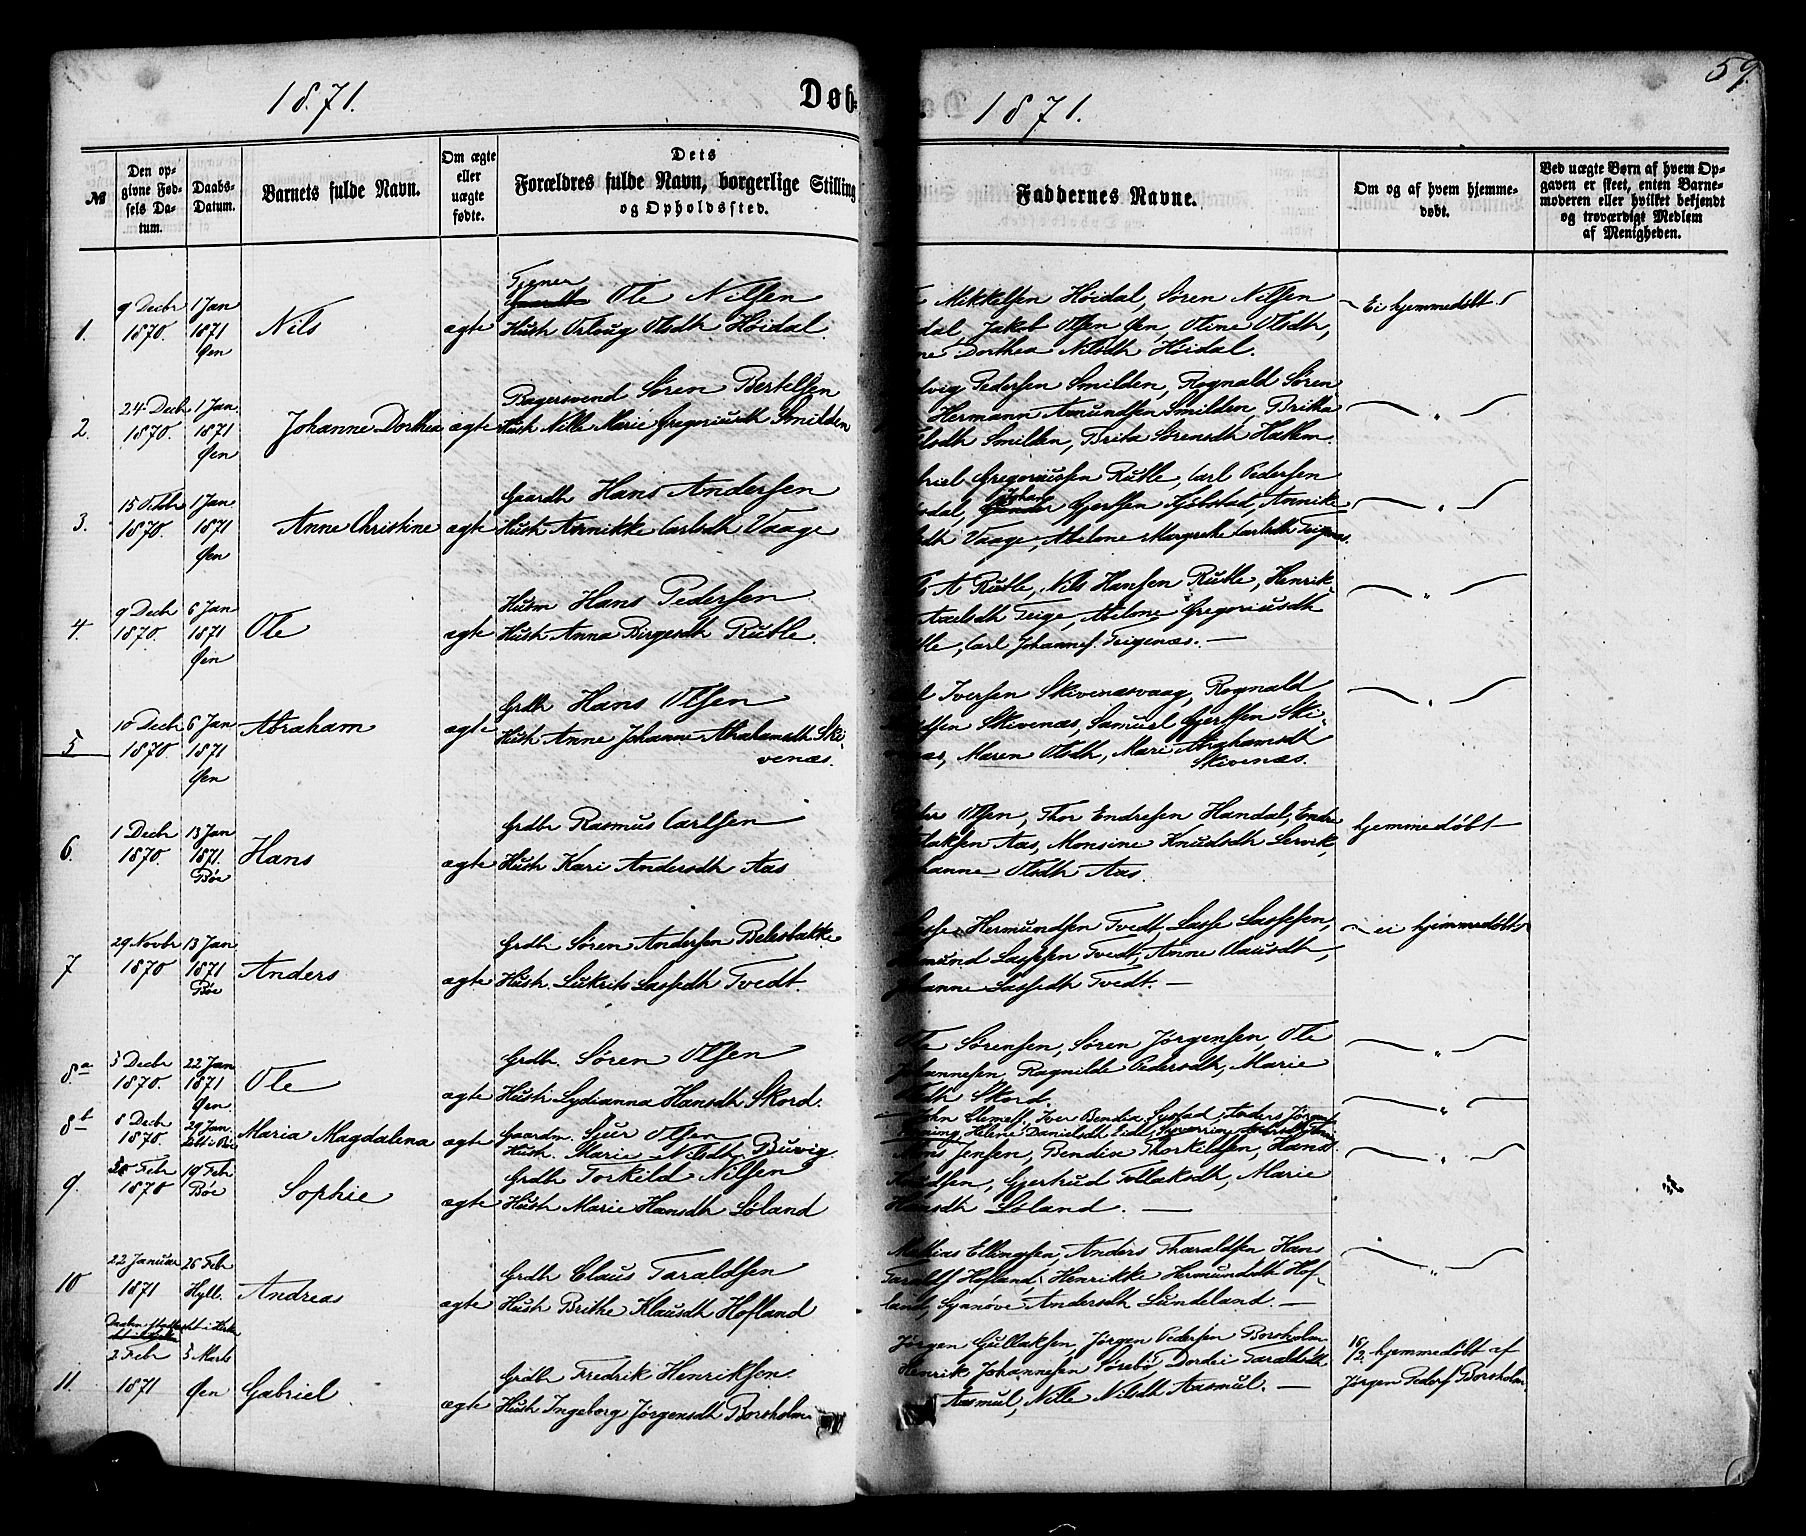 1871.
Døb-
1871.
59.
№
Den op-
givne Fød-
sels Da-
tum.
Daabs-
Datum.
Barnets fulde Navn.
Om ægte
eller
uægte
fødte.
Dets
Forældres fulde Navn, borgerlige Stilling
og Opholdssted.
Faddernes Navne.
Om og af hvem hjemme-
døbt.
Ved uægte Børn af hvem Op-
gaven er skeet, enten Barne-
moderen eller hvilket bekjendt
og troværdigt Medlem
af Menigheden.
1.
9 Decbr
1870.
1 Jan
1871
Øen
Nils
ægte
Tjener
Ole Nilsen
Hustr Orloug Olsdtr Höidal.
Mikkelsen Höidal, Søren Nilsen
dal, Jakob Olsen Øen, Oline Olsdtr,
ne Dorthea Nilsdtr Höidal.
Ei hjemmedøbt
2.
24 Decbr
1870.
1 Jan
1871
Øen
Johanne Dorthea
ægte
Bagersvend Søren Bertelsen
Hustr Nille Marie Gregoriusdtr Smilden
dvig Pedersen Smilden, Rognald Søren
Hermann Amundsen Smilden, Britha
Olsdtr Smilden, Brita Sørensdtr Hatlem
„
3.
15 Octbr
1870.
1 Jan
1871
Øen
Anne Christine
ægte
Gaardbr Hans Andersen
Hustr Annikke Carlsdtr Vaage
briel Gregoriussen Rutle, Carl Pedersen
dal, Johan Gjertsen Kjelstad, Annike
dtr Vaage, Abelone Margrethe Carlsdtr Teigenæs.
„
4.
9 Decbr
1870.
6 Jan
1871
Øen
Ole
ægte
Husm Hans Pedersen
Hustr Anna Birgesdtr Rutle.
A Rutle, Nils Hansen Rutle, Henrik-
Axelsdtr Teige, Abelone Gregoriusdtr
tle, Carl Johannes. Teigenæs. —
„
5
10 Decbr
1870.
6 Jan
1871
Øen
Abraham
ægte
Grdbr Hans Olsen
Hustr Anne Johanne Abrahamsdtr Ski-
venæs.
l Iversen Skivenæsvaag, Rognald
sen Skivenæs, Samuel Gjertsen Ski-
næs, Maren Olsdtr, Mari Abrahamsdtr
Skivenæs.
„
6.
1 Decbr
1870.
13 Jan
1871.
Bøe
Hans
ægte
Grdbr Rasmus Carlsen
Hustr Kari Andersdtr Aas
der Olsen, Thor Endresen Handal, Endre
laksen Aas, Monsine Knudsdtr Lervik,
Johanne Olsdtr Aas.
hjemmedøbt
7
29 Novbr
1870
13 Jan
1871
Bøe
Anders
ægte
Grdbr Søren Andersen Belesbakke
Hustr. Lukrits Lassedtr Tvedt.
Lasse Hermundsen Tvedt, Lasse Lassesen,
Hermund Lassesen Tvedt, Anne Clausdtr,
Johanne Lassedtr Tvedt. —
ei hjemmedøbt
8a
3 Decbr
1870.
22 Jan
1871
Øen
Ole
ægte
Grdbr. Søren Olsen
Hustr Lydianna Hansdtr Skord.
Ole Sørensen, Søren Jörgensen, Ole
Johannesen Ragnilde Pedersdtr, Marie
Olsdtr Skord.
„
8b
8 Decbr
1870.
29 Jan.
Maria Magdalena
ægte
Gaardm. Sjur Olsen
Hustr. Marie Nilsdtr Buvig
John Clemets, Iver Bendix. Systad, Anders Jörgens
Helene Danielsdtr Eide,
„
9.
20 Feb
1870
19 Feb
Bøe
Sophie
ægte
Grdbr Torkild Nilsen
Hustr Marie Hansdtr Löland
Mons Jensen, Bendix Thorkildsen, Hans
Knudsen, Gjertrud Tollaksdtr, Marie
Hansdtr Löland. —
„
10
22 Januar
1871
26 Feb
Hyll.
Andreas
ægte
Grdbr Claus Taraldsen
Hustr Brithe Klausdtr Hofland
Mathias Ellingsen, Anders Tharaldsen Hans
Taralds Hofland, Henrikke Hermundsdtr Hof-
land, Gjanöve Andersdtr Lundeland. —
„
11.
2 Febr
1871
5 Marts
Øen
Gabriel
ægte
Grdbr Fredrik Henriksen.
Hustr Ingeborg Jörgensdtr Borsholm
Jörgen Gullaksen, Jörgen Pedersen Borsholm
Henrik Johannesen Sörebö Dordei Taraldsdtr
Aasmul, Nille Nilsdtr Aasmul. —
15/2. hjemmedøbt af
Jörgen Peders Borsholm